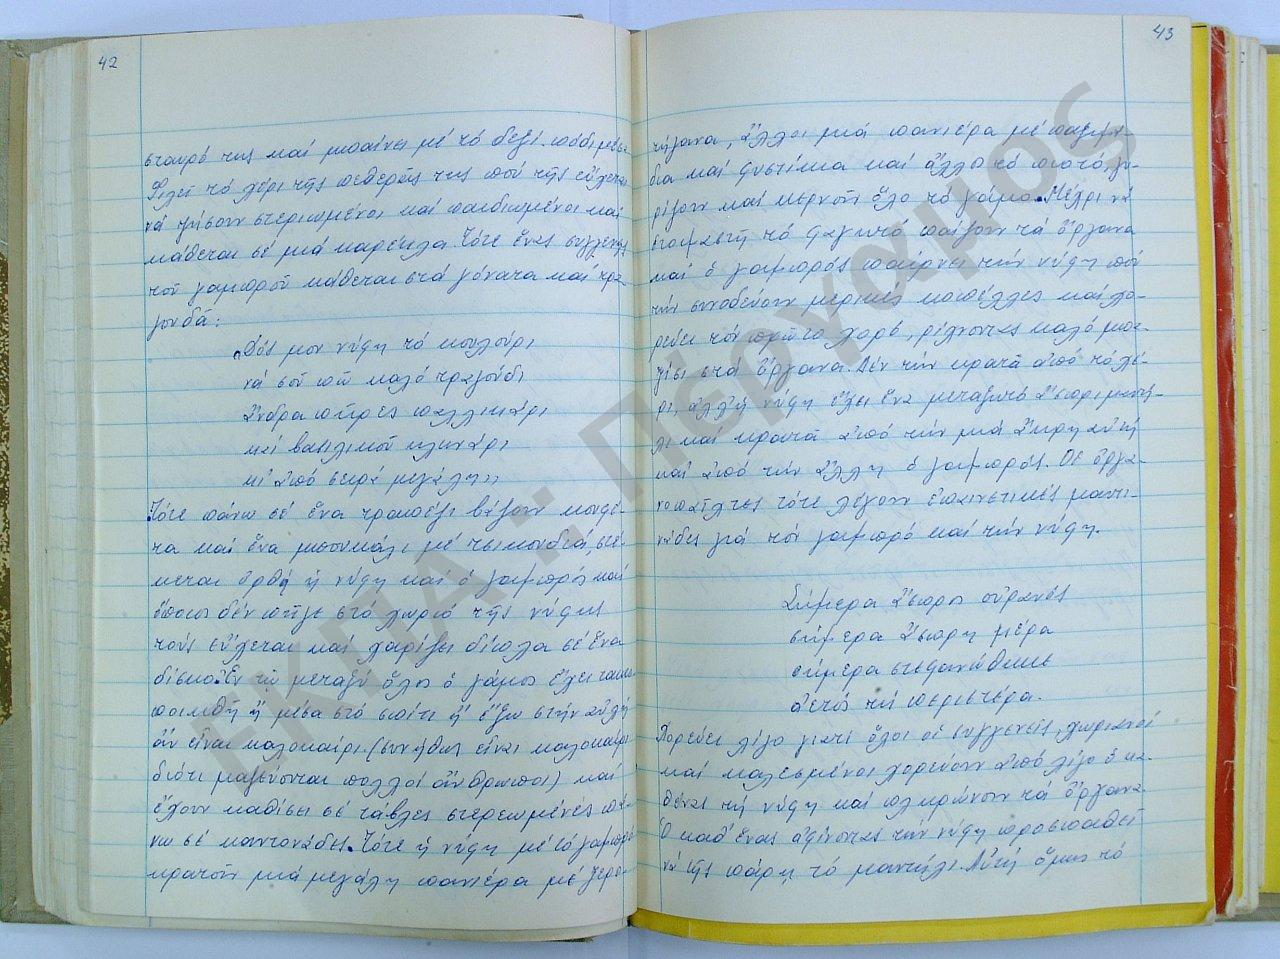 42
σταυρό της καί μπαίνει μέ τό δεξί πόδι μέσα.
Φιλεῖ τό χέρι τῆς πεθερᾶς της πού τῆς εὔχεται
νά ζήσουν στεριωμένοι καί παιδιωμένοι καί
κάθεται σέ μιά καρέκλα. Τότε ἕνας συγγενής
τοῦ γαμπροῦ κάθεται στά γόνατα καί τρα-
γουδᾶ:
„Δός μου νύφη τό κουλούρι
νά σοῦ πῶ καλό τραγούδι
ἄνδρα πῆρες παλληκάρι
καί βασιλικοῦ κλωνάρι
κι ἀπό σειρά μεγάλη„
Τότε πάνω σέ ἕνα τραπέζι βάζουν κουφέ-
τα καί ἕνα μπουκάλι μέ τσικουδιά, στέ-
κεται ὀρθή ἡ νύφη καί ὁ γαμπρός καί
ὅποιοι δέν πῆγε στό χωριό τῆς νύφης
τούς εὔχεται καί χαρίζει δίπλα σέ ἕνα
δίσκο. Ἐν τῷ μεταξύ ὅλος ὁ γάμος ἔχει τακτο-
ποιηθῆ ἤ μέσα στό σπίτι ἤ ἔξω στήν αὐλή
ἄν εἶναι καλοκαίρι (συνήθως εἶναι καλοκαίρι
διότι μαζεύονται πολλοί ἄνθρωποι) καί
ἔχουν καθίσει σέ τάβλες στερεωμένες πά-
νω σέ καντονάδες. Τότε ἡ νύφη μέ τό γαμπρό
κρατοῦν μιά μεγάλη πανιέρα μέ ξερο-
43
τήγανα, ἄλλοι μιά πανιέρα μέ παξιμά-
δια καί φυστίκια καί ἄλλο τό πιοτό, γυ-
ρίζουν καί κερνοῦν ὅλο τό γάμο. Μέχρι νά
ἑτοιμαστῆ τό φαγητό παίζουν τά ὄργανα
καί ὁ γαμπρός παίρνει τήν νύφη πού
τήν συνοδεύουν μερικές κοπέλλες καί χο-
ρεύει τόν πρῶτο χορό, ρίχνοντας καλό μπα-
ξίσι στά ὄργανα. Δέν τήν κρατᾶ ἀπό τό χέ-
ρι, ἀλλ' ἡ νύφη ἔχει ἕνα μεταξωτό ἄσπρο μαντή-
λι καί κρατᾶ ἀπό τήν μιά ἄκρη αὐτή
καί ἀπό τήν ἄλλη ὁ γαμπρός. Οἱ ὀργα-
νοπαῖχτες τότε λέγουν ἐπαινετικές μαντι-
νάδες γιά τόν γαμπρό καί τήν νύφη.
Σήμερα ἄσπρος οὐρανός
σήμερα ἄσπρη μέρα
σήμερα στεφανώθηκε
ἀετός τή περιστέρα.
Χορεύει λίγο γιατί ὅλοι οἱ συγγενεῖς, χωριανοί
καί καλεσμένοι χορεύουν ἀπό λίγο ὁ κα-
θένας τή νύφη καί πληρώνουν τά ὄργανα.
Ὁ καθ' ἕνας ἀφήνοντας τήν νύφη προσπαθεῖ
νά τῆς πάρη τό μαντήλι. Αὐτή ὅμως τό
ΕΚΠΑ :: Πέργαμος